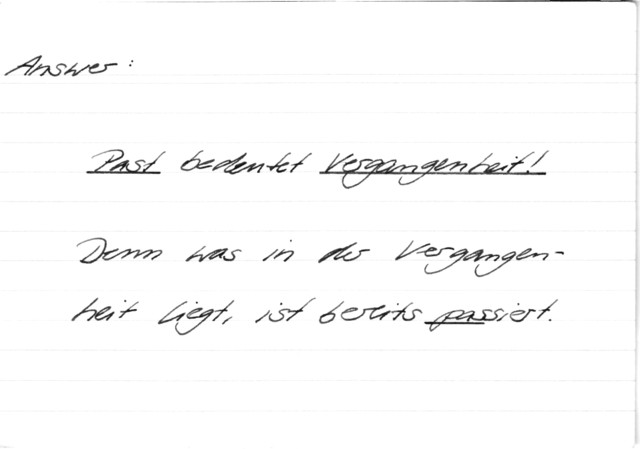 Answer:
Past bedeutet Vergangenheit!
Denn was in der Vergangen-
heit liegt, ist bereits passiert.